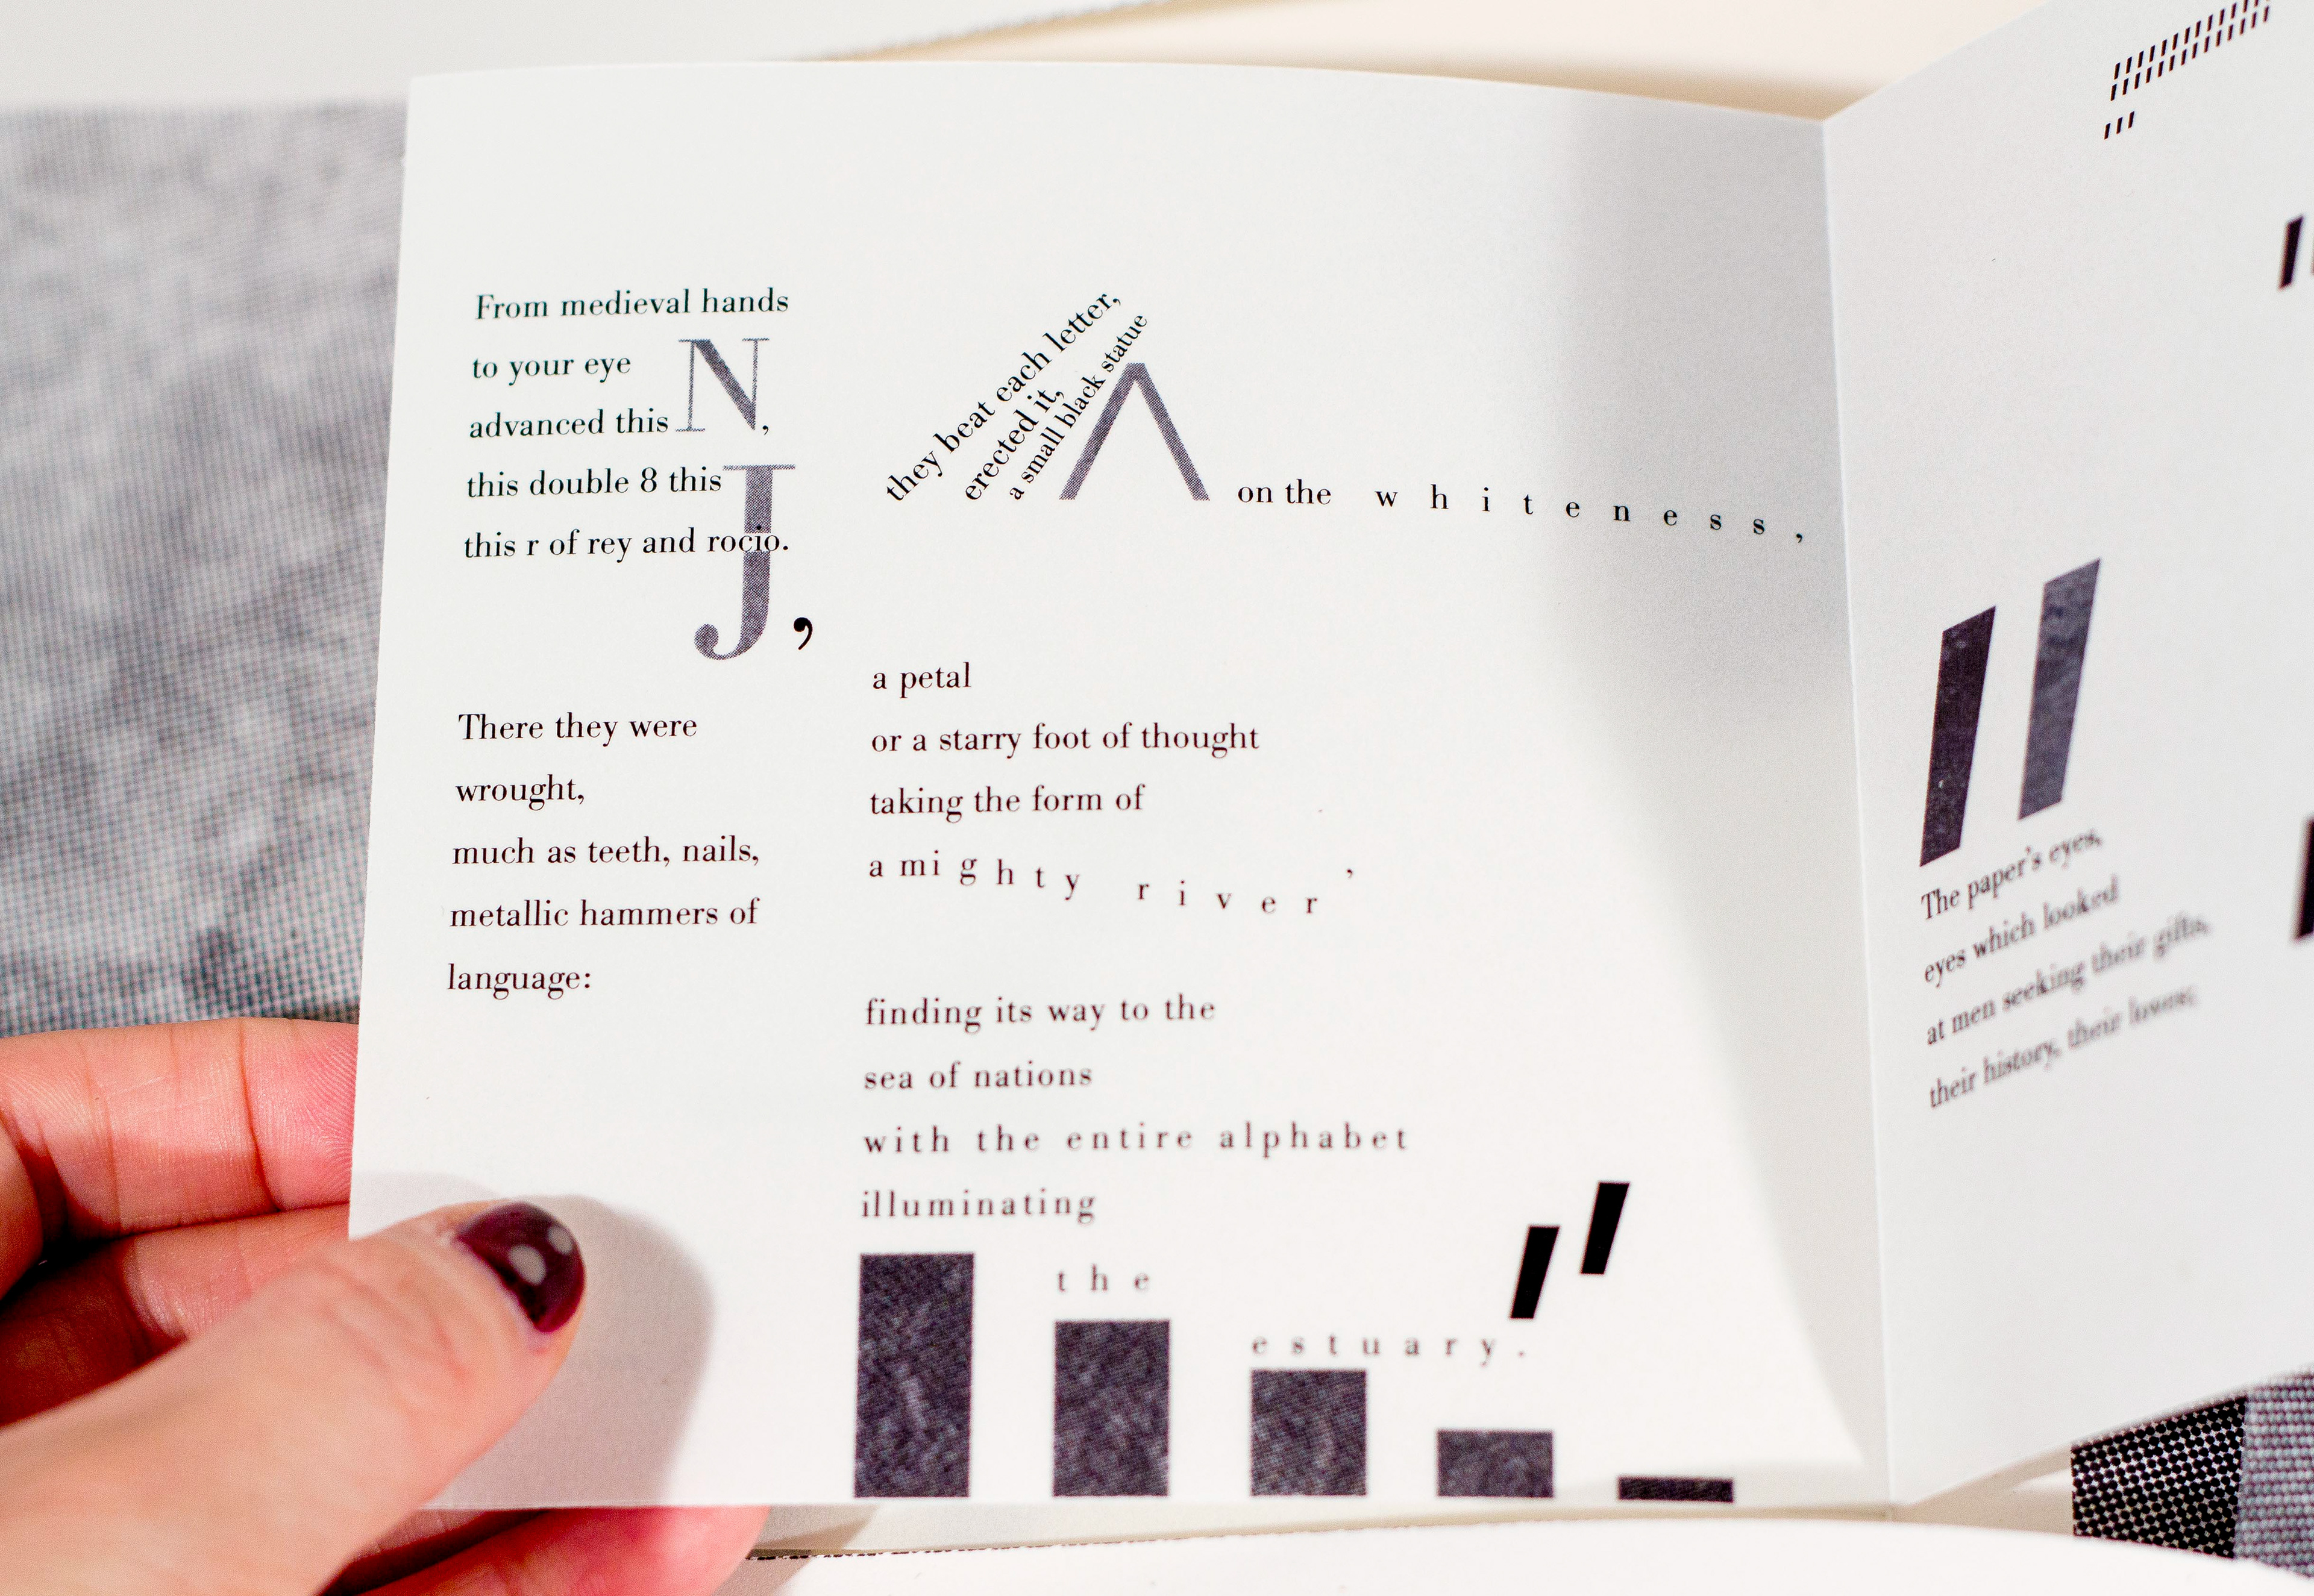 From medieval hands
to your eye
advanced this N,
this double 8 this J,
this r of rey and rocio.
There they were
wrought,
much as teeth, nails,
metallic hammers of
language:
they beat each letter,
erected it,
a small black statue
Λ on the whiteness,
a petal
or a starry foot of thought
taking the form of
a mighty river,
finding its way to the
sea of nations
with the entire alphabet
illuminating
the
estuary.
The paper's eyes,
eyes which looked
at men seeking their gifts,
their history, their loves;